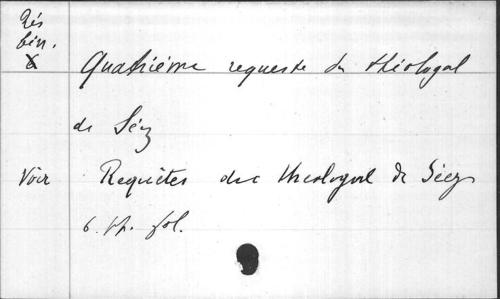 Rés
bin.
6
Quatrième requeste du théologal
de Séez
Voir Requêtes du théologal de Séez
6. pp. fol.